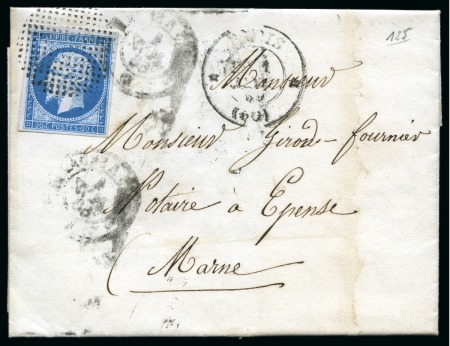 EMPIRE FRANC
20C POSTES 20C
125
PARIS
1
(60)
Monsieur
Monsieur Girod-fournier
Notaire à Epense
(Marne